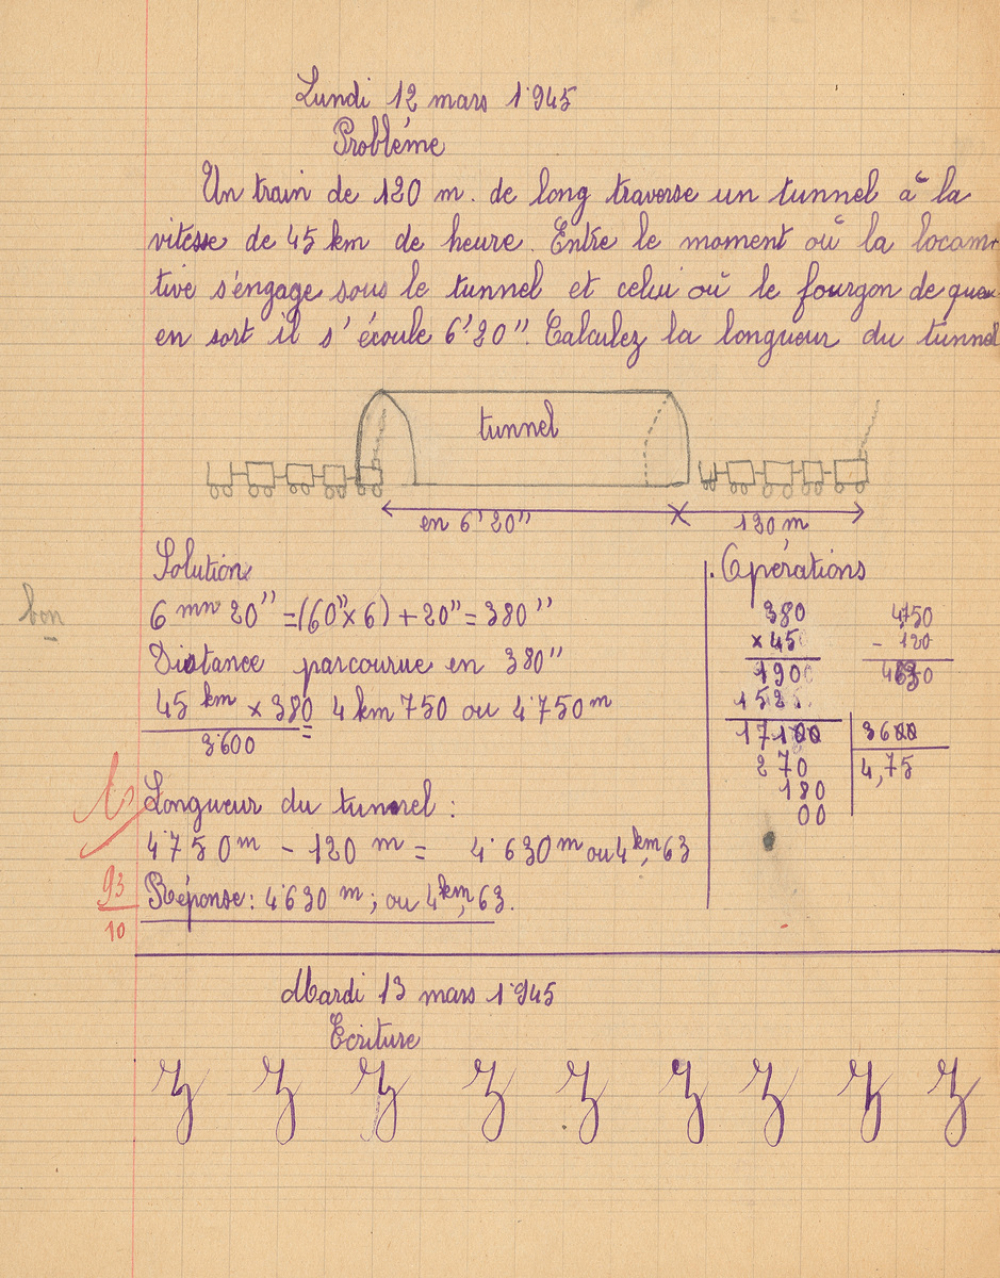 Lundi 12 mars 1945
Problème
Un train de 120 m. de long traverse un tunnel à la
vitesse de 45 km de heure. Entre le moment où la locom
tive s'engage sous le tunnel et celui où le fourgon de queu
en sort il s'écoule 6'20". Calculez la longueur du tunnel
tunnel
en 6'20"
120 m
Solution
Opérations
bon
6 mn 20" = (60" x 6) + 20" = 380"
380
x 45
190
17100
270
180
00
4750
- 120
4630
3600
4,75
Distance parcourue en 380"
45 km x 380 = 4 km 750 ou 4'750 m
3600
Longueur du tunnel :
4'750 m - 120 m = 4'630 m ou 4 km, 63
93
10
Réponse : 4'630 m ; ou 4 km, 63.
Mardi 13 mars 1945
Ecriture
z z z z z z z z z